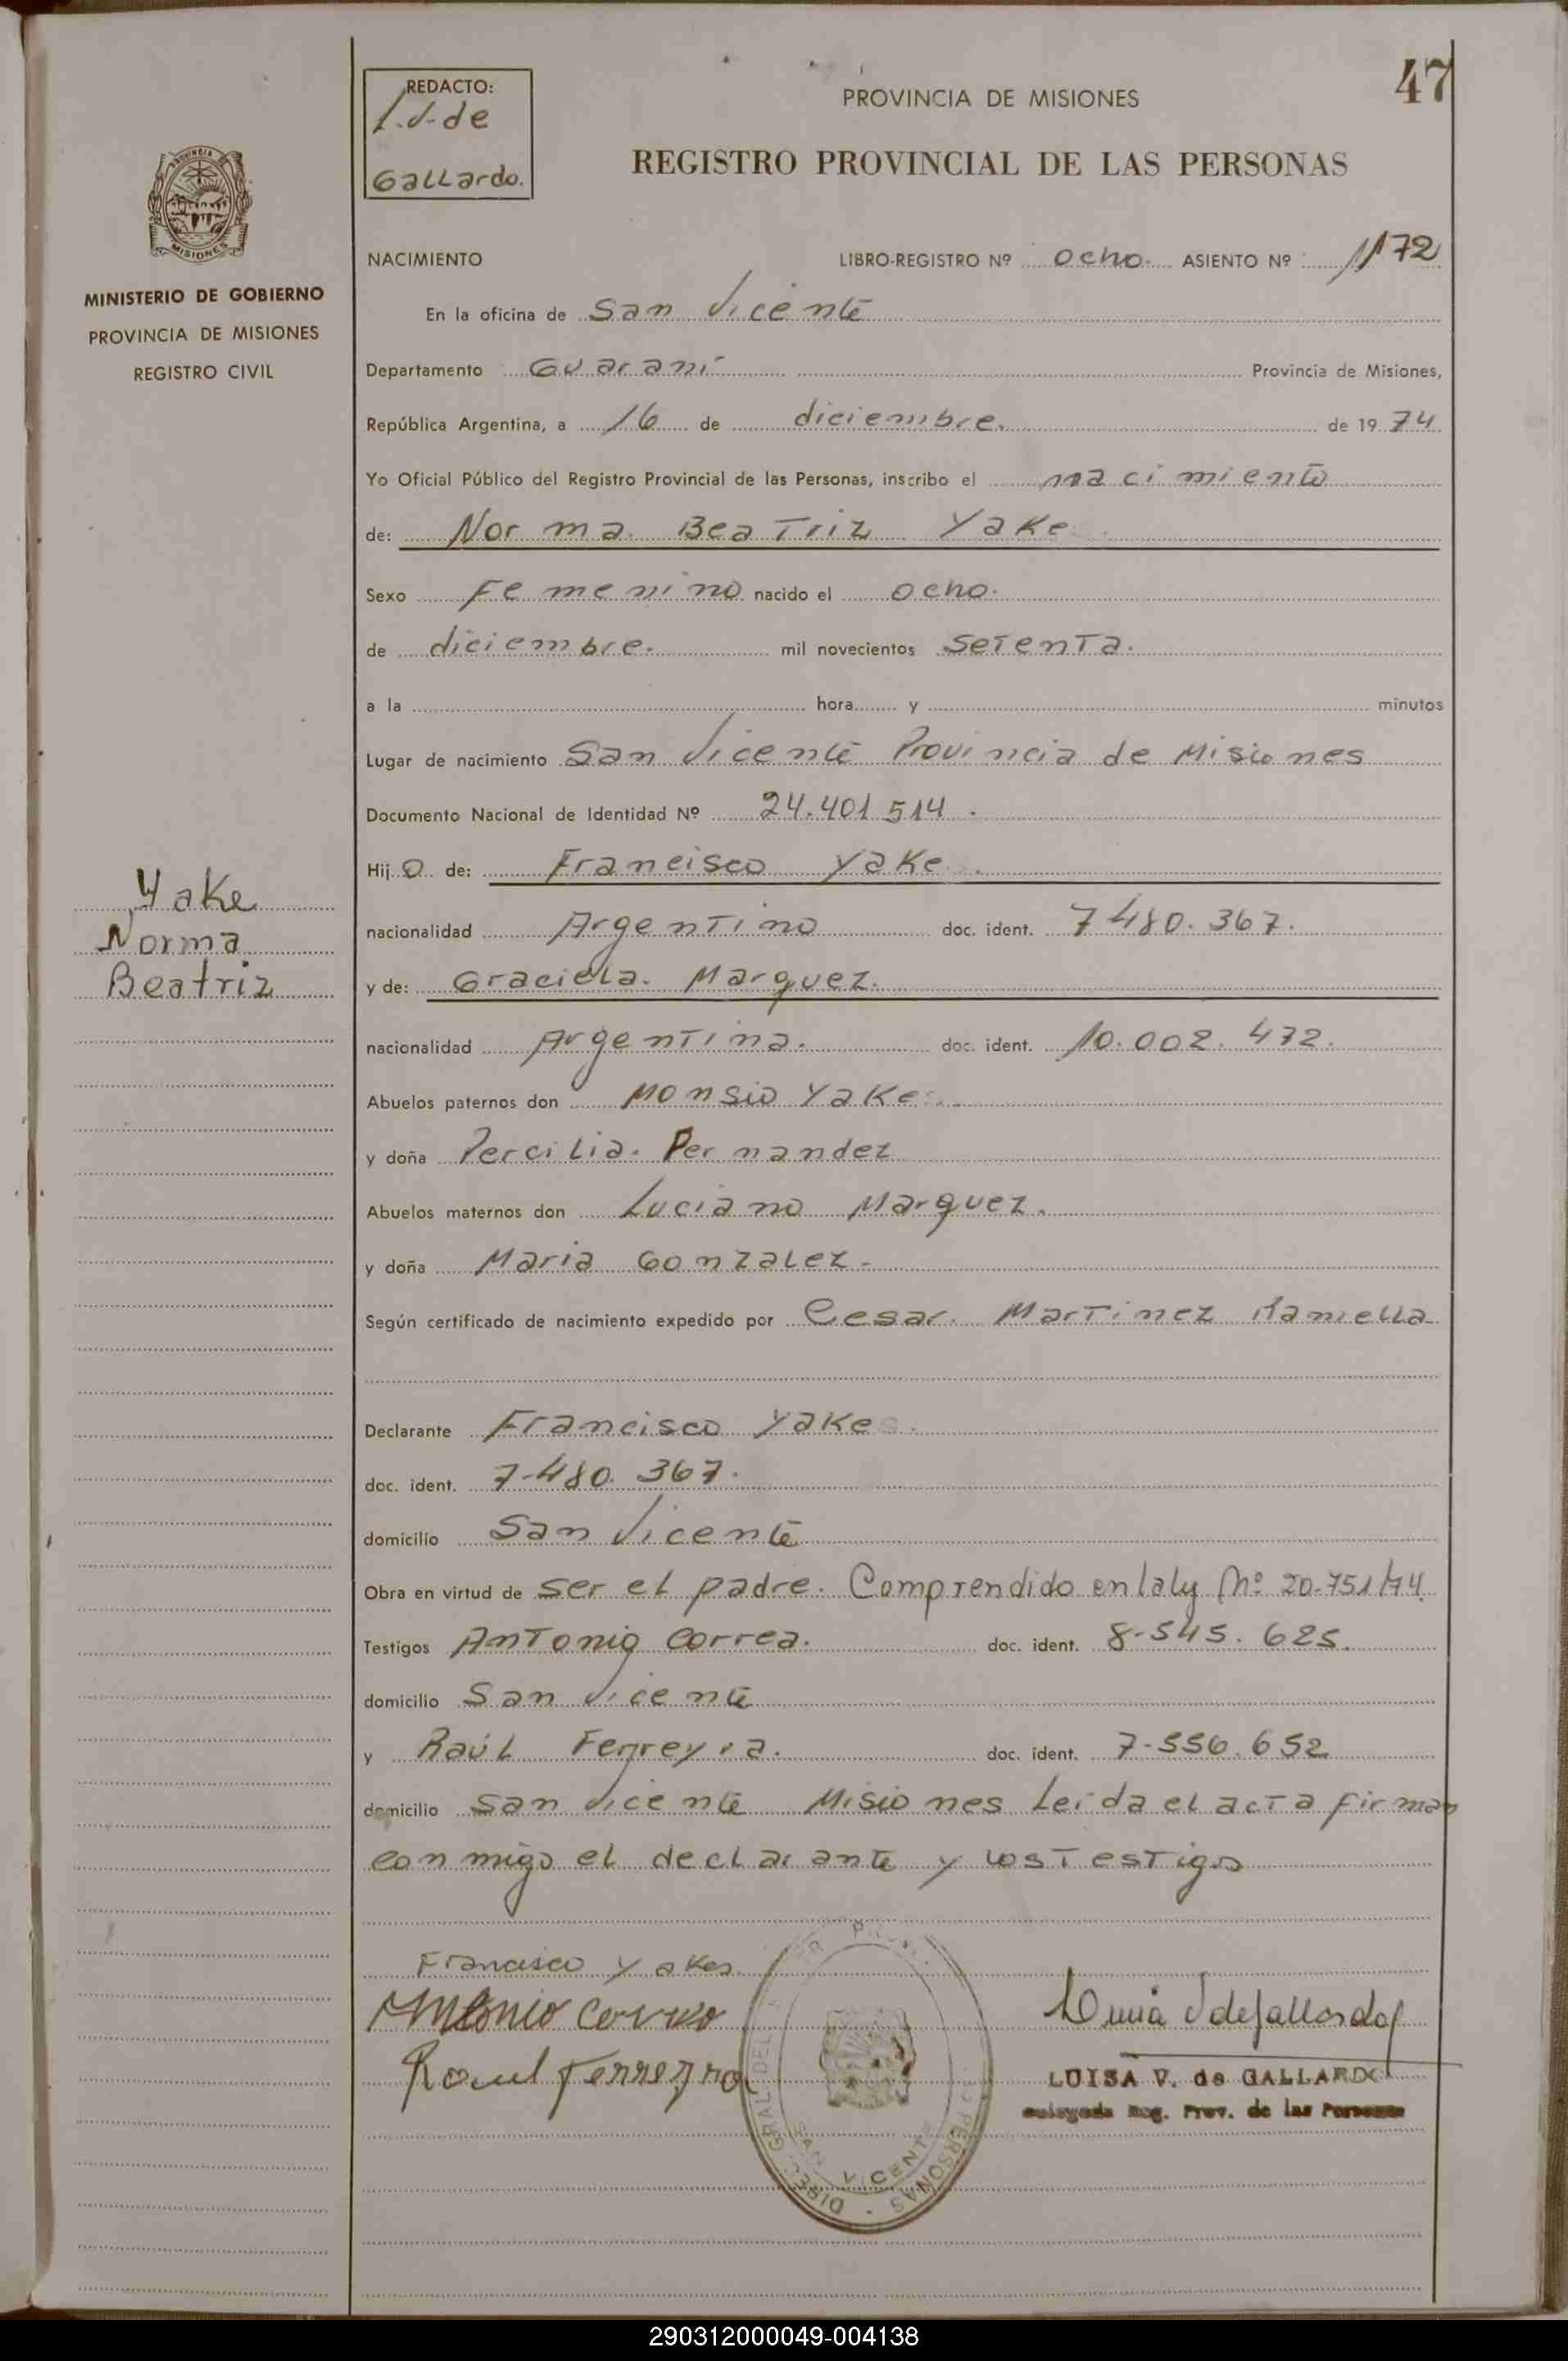 47
REDACTO:
L.V. de
Gallardo.
PROVINCIA DE MISIONES
REGISTRO PROVINCIAL DE LAS PERSONAS
MISIONES
MINISTERIO DE GOBIERNO
PROVINCIA DE MISIONES
REGISTRO CIVIL
NACIMIENTO LIBRO-REGISTRO Nº ocho. ASIENTO Nº 1172
En la oficina de San Vicente
Departamento Guaraní Provincia de Misiones,
República Argentina, a 16 de diciembre. de 1974
Yo Oficial Público del Registro Provincial de las Personas, inscribo el nacimiento
de: Norma Beatriz Yake
Sexo Femenino nacido el ocho.
de diciembre. mil novecientos setenta.
a la hora y minutos
Lugar de nacimiento San Vicente Provincia de Misiones
Documento Nacional de Identidad Nº 24.401514.
Hija de: Francisco Yake
nacionalidad Argentino doc. ident. 7480.367.
y de: Graciela. Marquez.
nacionalidad Argentina. doc. ident. 10.002.472.
Abuelos paternos don Monsio Yake
y doña Percilia. Pernandez
Abuelos maternos don Luciano Marquez.
y doña Maria Gonzalez-
Según certificado de nacimiento expedido por Cesar. Martinez Ramella
Declarante Francisco Yake
doc. ident. 7-480.367.
domicilio San Vicente
Obra en virtud de ser el padre. Comprendido en la ly Nº 20.751/74.
Testigos Antonio Correa. doc. ident. 8-545.625.
domicilio San Vicente
y Raúl Ferreyra. doc. ident. 7-556.652
domicilio San Vicente Misiones Leída el acta firman
conmigo el declarante y los testigos
Yake
Norma
Beatriz
Francisco Yakes
Antonio Correa
Raul Ferreyra
LUISA V. de GALLARDO
Delegada Reg. Prov. de las Personas
DIREC. GRAL. DEL PERSONAS
SAN VICENTE
290312000049-004138